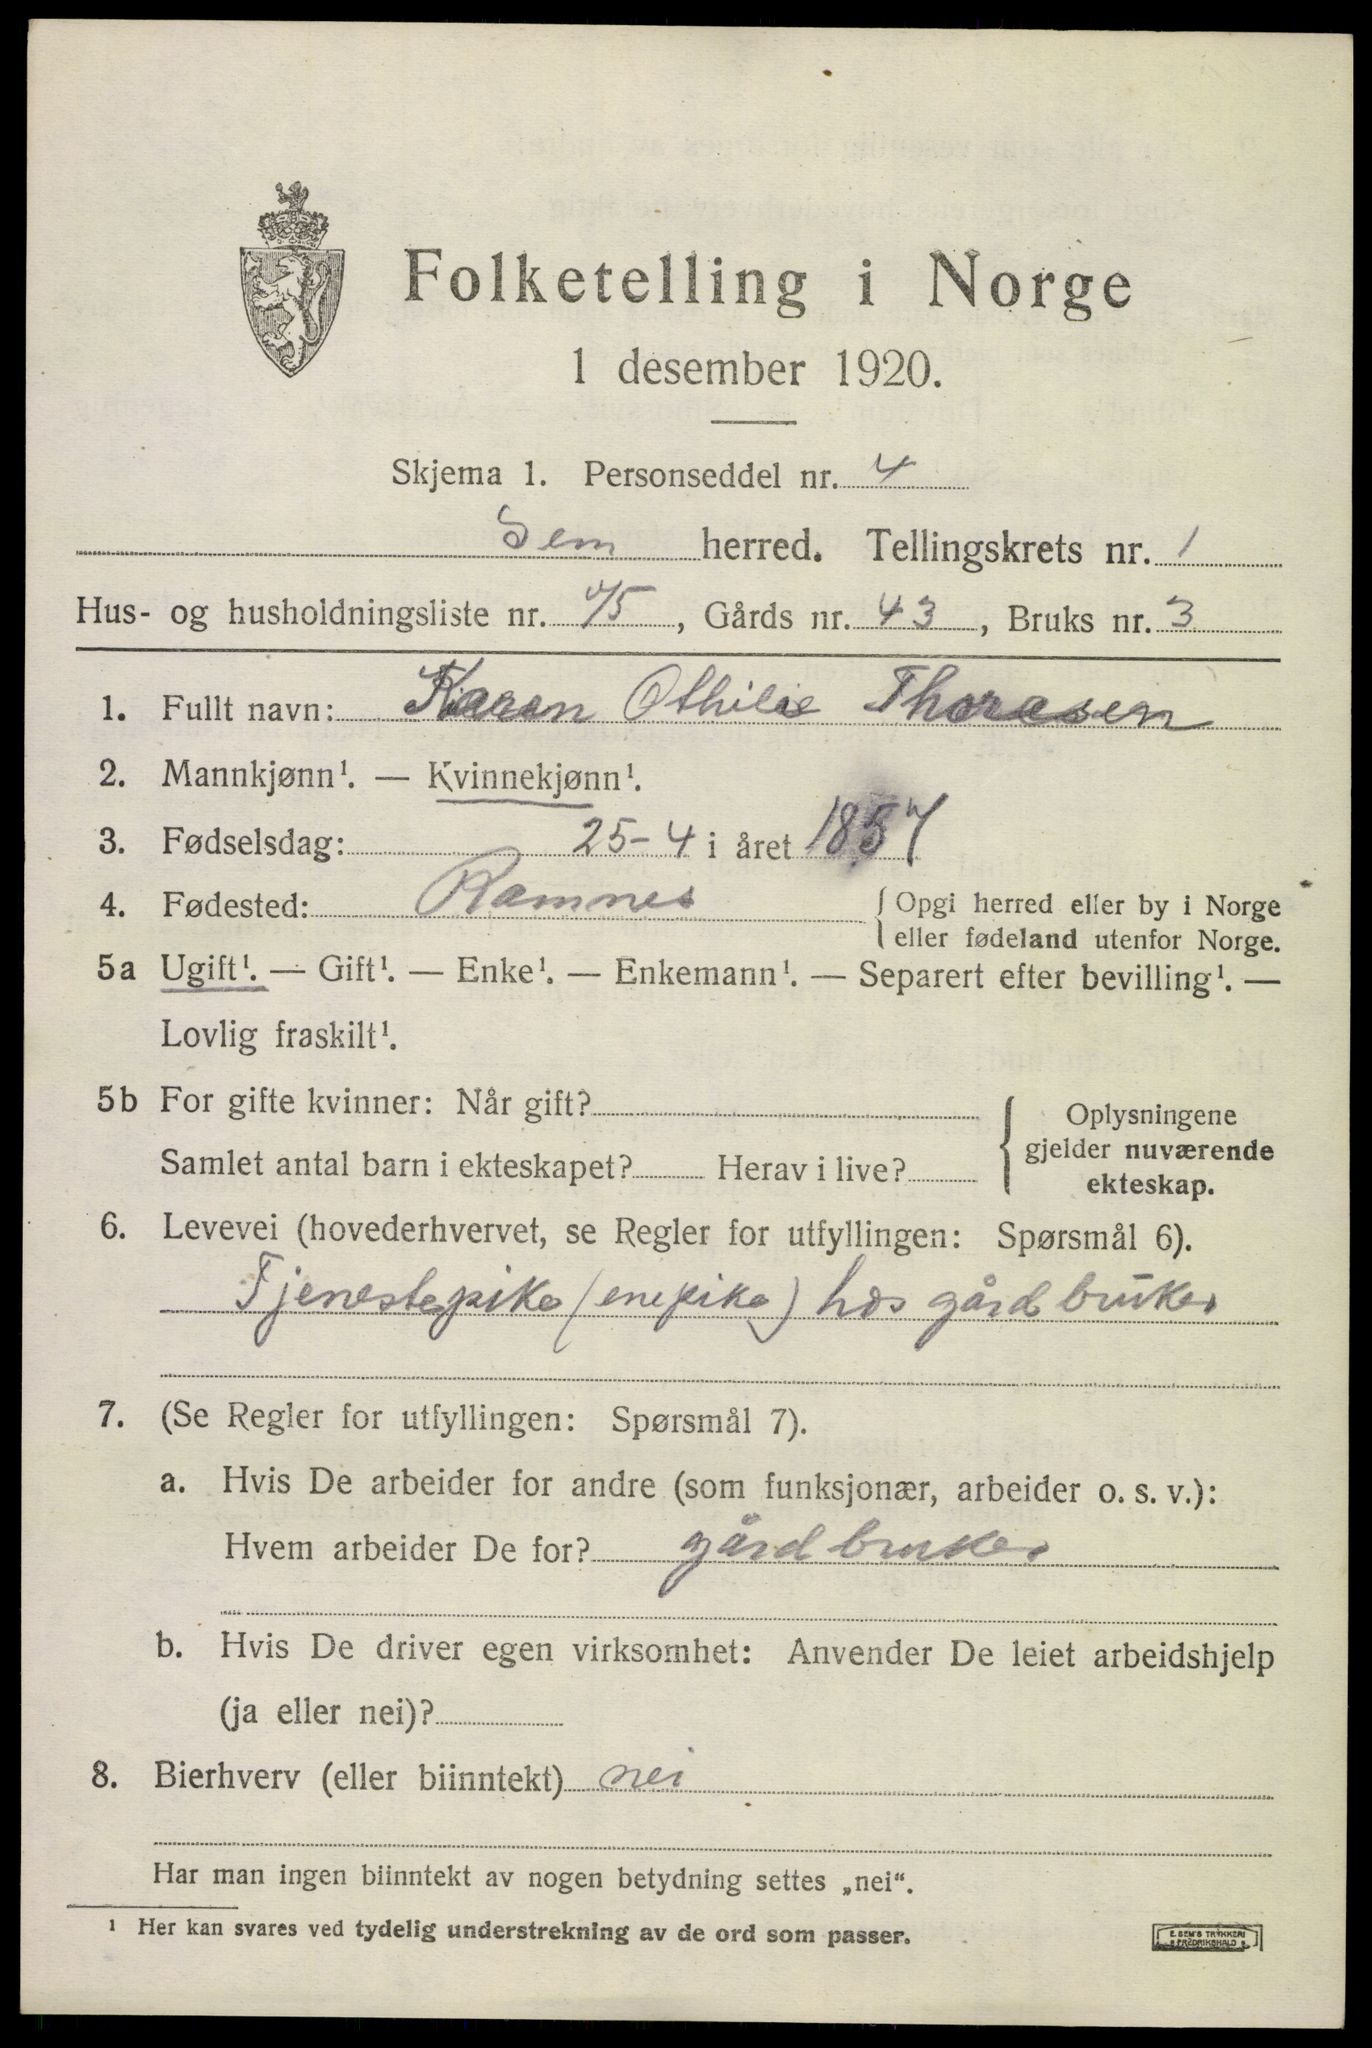 Folketelling i Norge
1 desember 1920.
Skjema 1. Personseddel nr. 4
Sem herred. Tellingskrets nr. 1
Hus- og husholdningsliste nr. 45, Gårds nr. 43, Bruks nr. 3
1. Fullt navn: Karen Othilie Thoresen
2. Mannkjønn¹. — Kvinnekjønn¹.
3. Fødselsdag: 25-4 i året 1857
4. Fødested: Ramnes { Opgi herred eller by i Norge
eller fødeland utenfor Norge.
5a Ugift¹. — Gift¹. — Enke¹. — Enkemann¹. — Separert efter bevilling¹. —
Lovlig fraskilt¹.
5b For gifte kvinner: Når gift?
Samlet antal barn i ekteskapet? Herav i live?
{ Oplysningene
gjelder nuværende
ekteskap.
6. Levevei (hovederhvervet, se Regler for utfyllingen: Spørsmål 6).
Tjenestepike (enepike) hos gårdbruker
7. (Se Regler for utfyllingen: Spørsmål 7).
a. Hvis De arbeider for andre (som funksjonær, arbeider o. s. v.):
Hvem arbeider De for? gårdbruker
b. Hvis De driver egen virksomhet: Anvender De leiet arbeidshjelp
(ja eller nei)?
8. Bierhverv (eller biinntekt) nei
Har man ingen biinntekt av nogen betydning settes „nei“.
¹ Her kan svares ved tydelig understrekning av de ord som passer.
E. SEM'S TRYKKERI
FREDRIKSHALD